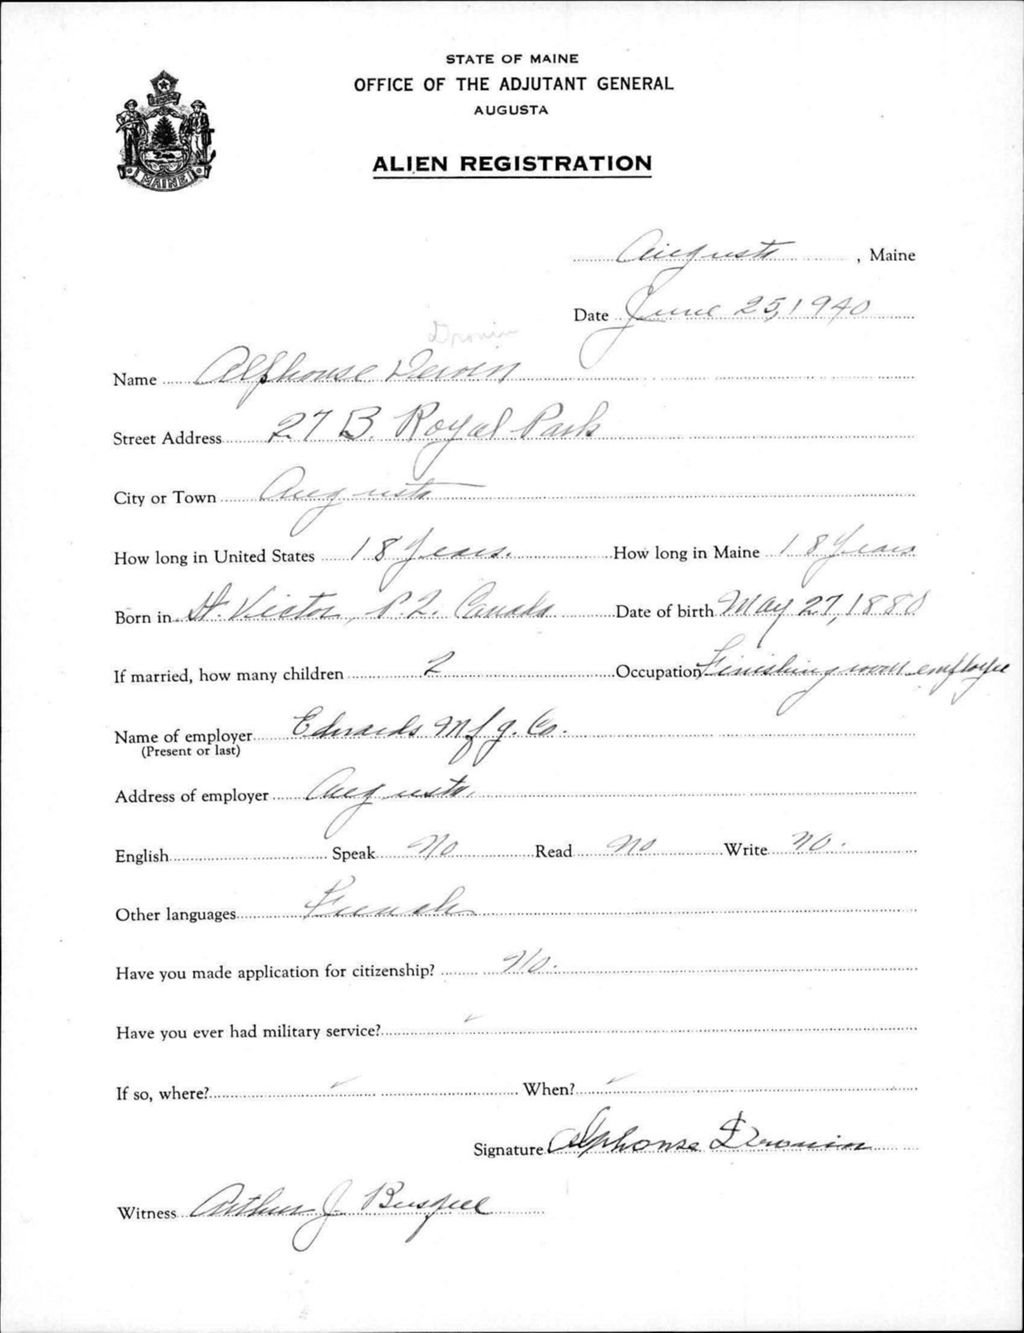 STATE OF MAINE
OFFICE OF THE ADJUTANT GENERAL
AUGUSTA
MAINE
ALIEN REGISTRATION
Augusta, Maine
Date June 25, 1940
Drouin
Name Alphonse
Street Address 27 B. Royal Park
City or Town Augusta
How long in United States 18 Years. How long in Maine 18 Years
Born in St. Victor, P.Q. Canada Date of birth May 27, 1880
If married, how many children 2 Occupation Finishing room employee
Name of employer Edwards Mfg. Co.
(Present or last)
Address of employer Augusta.
English Speak No Read No Write No.
Other languages French
Have you made application for citizenship? No.
Have you ever had military service?
If so, where? When?
Signature Alphonse
Witness Arthur J.